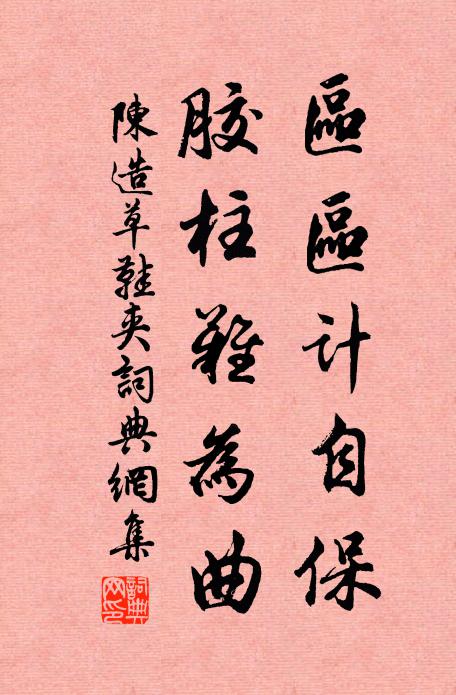 區區計自保
膠柱難為曲
陳造草鞋夾詞典網集
詞典網印